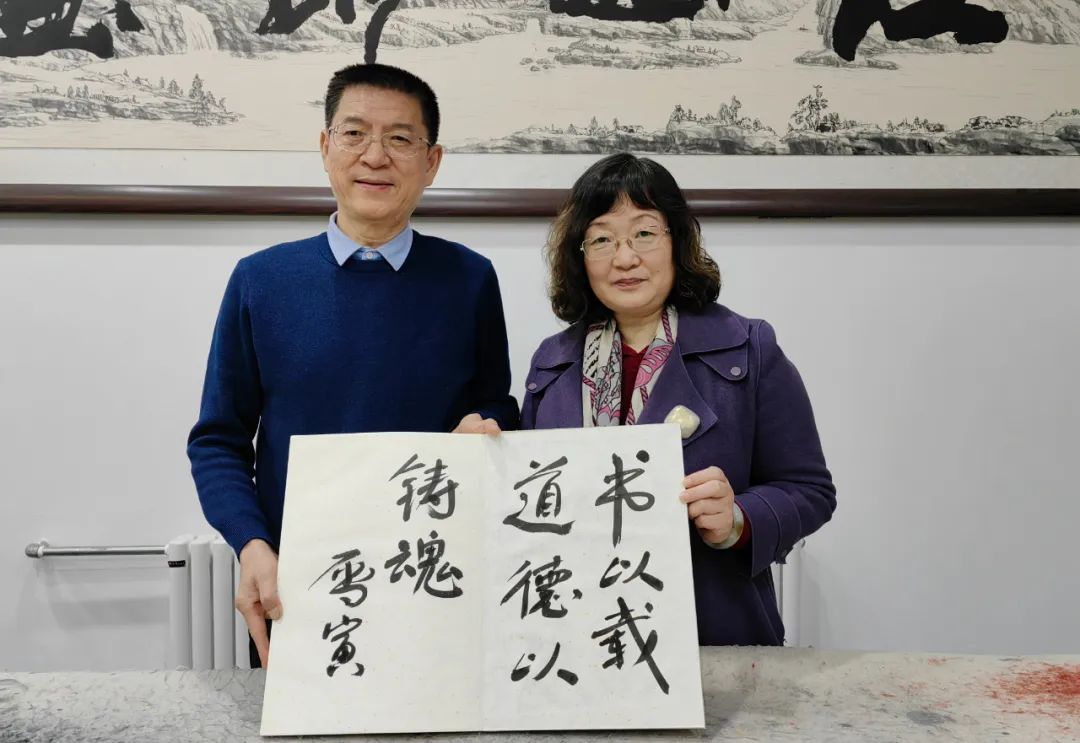 书以载
道德以
铸魂
寅